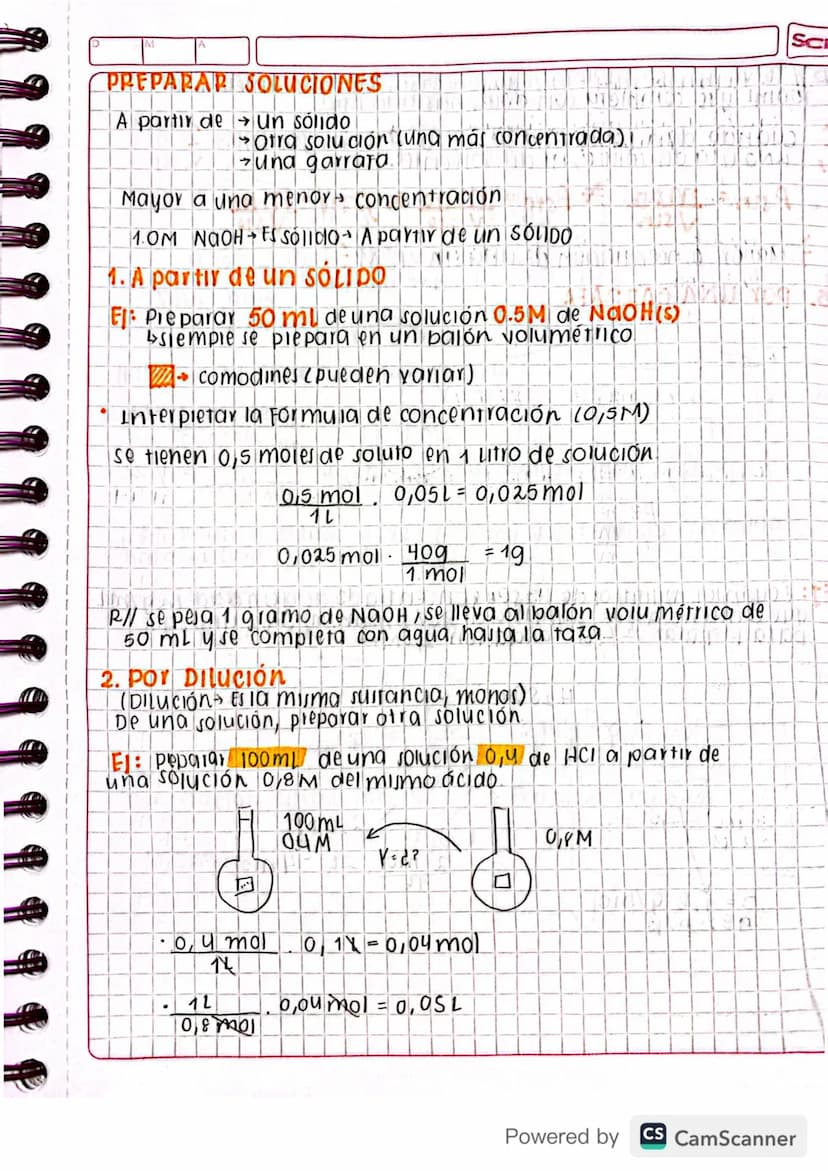 D M A
SCR
PREPARAR SOLUCIONES
A partir de → un sólido
→ Otra solución (una más concentrada)
→ una garrafa
Mayor a una menor → concentración
1.0M NaOH → Es sólido → A partir de un SÓLIDO
1. A partir de un SÓLIDO
Ej: Preparar 50 ml de una solución 0.5M de NaOH(s)
↳ siempre se prepara en un balón volumétrico
→ comodines (pueden variar)
• Interpretar la fórmula de concentración (0,5M)
se tienen 0,5 moles de soluto en 1 litro de solución
0,5 mol / 1L . 0,05L = 0,025 mol
0,025 mol . 40g / 1 mol = 1g
R// se pesa 1 gramo de NaOH, se lleva al balón volumétrico de
50 mL y se completa con agua hasta la taza
2. POR DILUCIÓN
(Dilución → Es la misma sustancia, monos)
De una solución, preparar otra solución
Ej: Peparar 100mL de una solución 0,4 de HCl a partir de
una solución 0,8M del mismo ácido
100mL
04M
V=¿?
0,8M
· 0,4 mol / 1L . 0,1L = 0,04 mol
· 1L / 0,8 mol . 0,04 mol = 0,05L
Powered by CS CamScanner